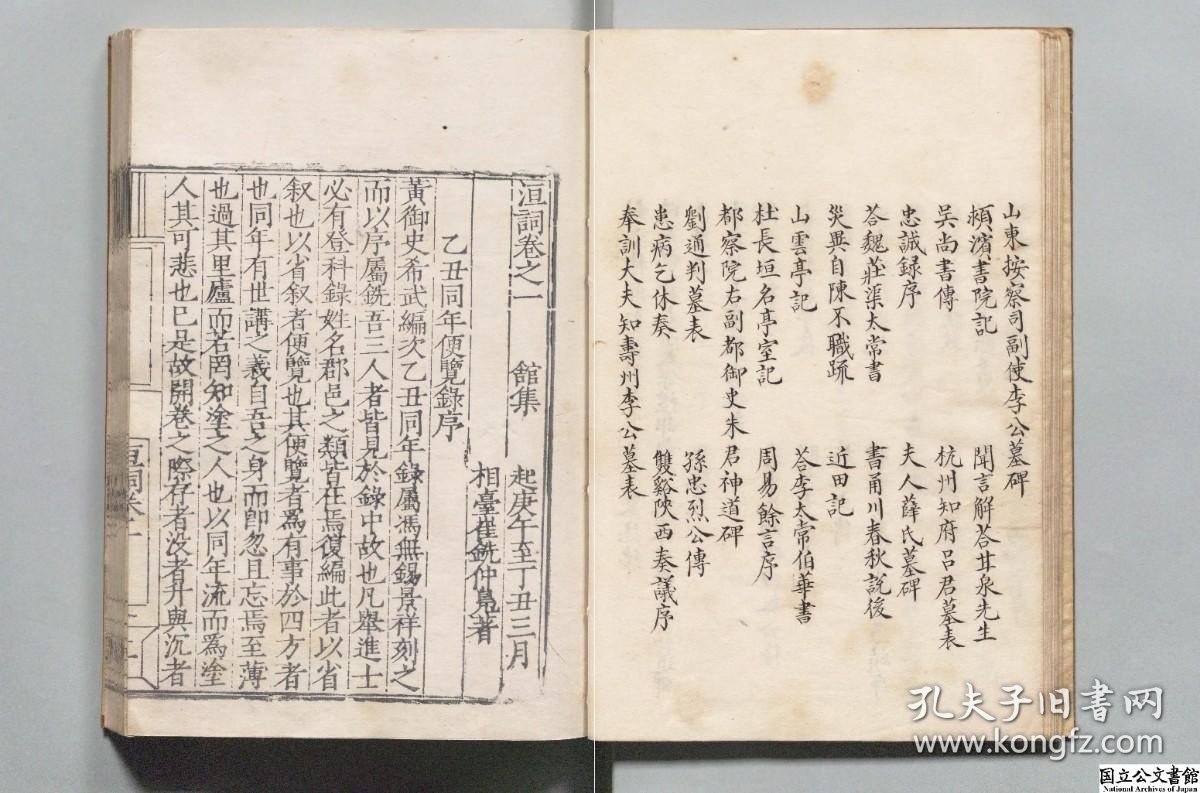 山東按察司副使李公墓碑
頻濱書院記　聞言解荅甘泉先生
吳尚書傳　杭州知府呂君墓表
忠誠録序　夫人薛氏墓碑
荅魏莊渠太常書　書甬川春秋說後
災異自陳不職疏　近田記
山雲亭記　荅李太常伯華書
杜長垣名亭室記　周易餘言序
都察院右副都御史朱君神道碑
劉通判墓表　孫忠烈公傳
患病乞休奏　雙谿陝西奏議序
奉訓大夫知壽州李公墓表
洹詞卷之一　館集　起庚午至丁丑三月
相臺崔銑仲鳧著
乙丑同年便覽錄序
黃御史希武編次乙丑同年錄屬馮無錫景祥刻之
而以序屬銑吾三人者皆見於錄中故也凡舉進士
必有登科錄姓名郡邑之類皆在焉復編此者以省
叙也以省叙者便覽也其便覽者爲有事於四方者
也同年有世講之義自吾之身而即忽且忘焉至薄
也過其里廬而若罔知塗之人也以同年流而爲塗
人其可悲也已是故開卷之際存者没者升與沉者
孔夫子旧书网
www.kongfz.com
国立公文書館
National Archives of Japan